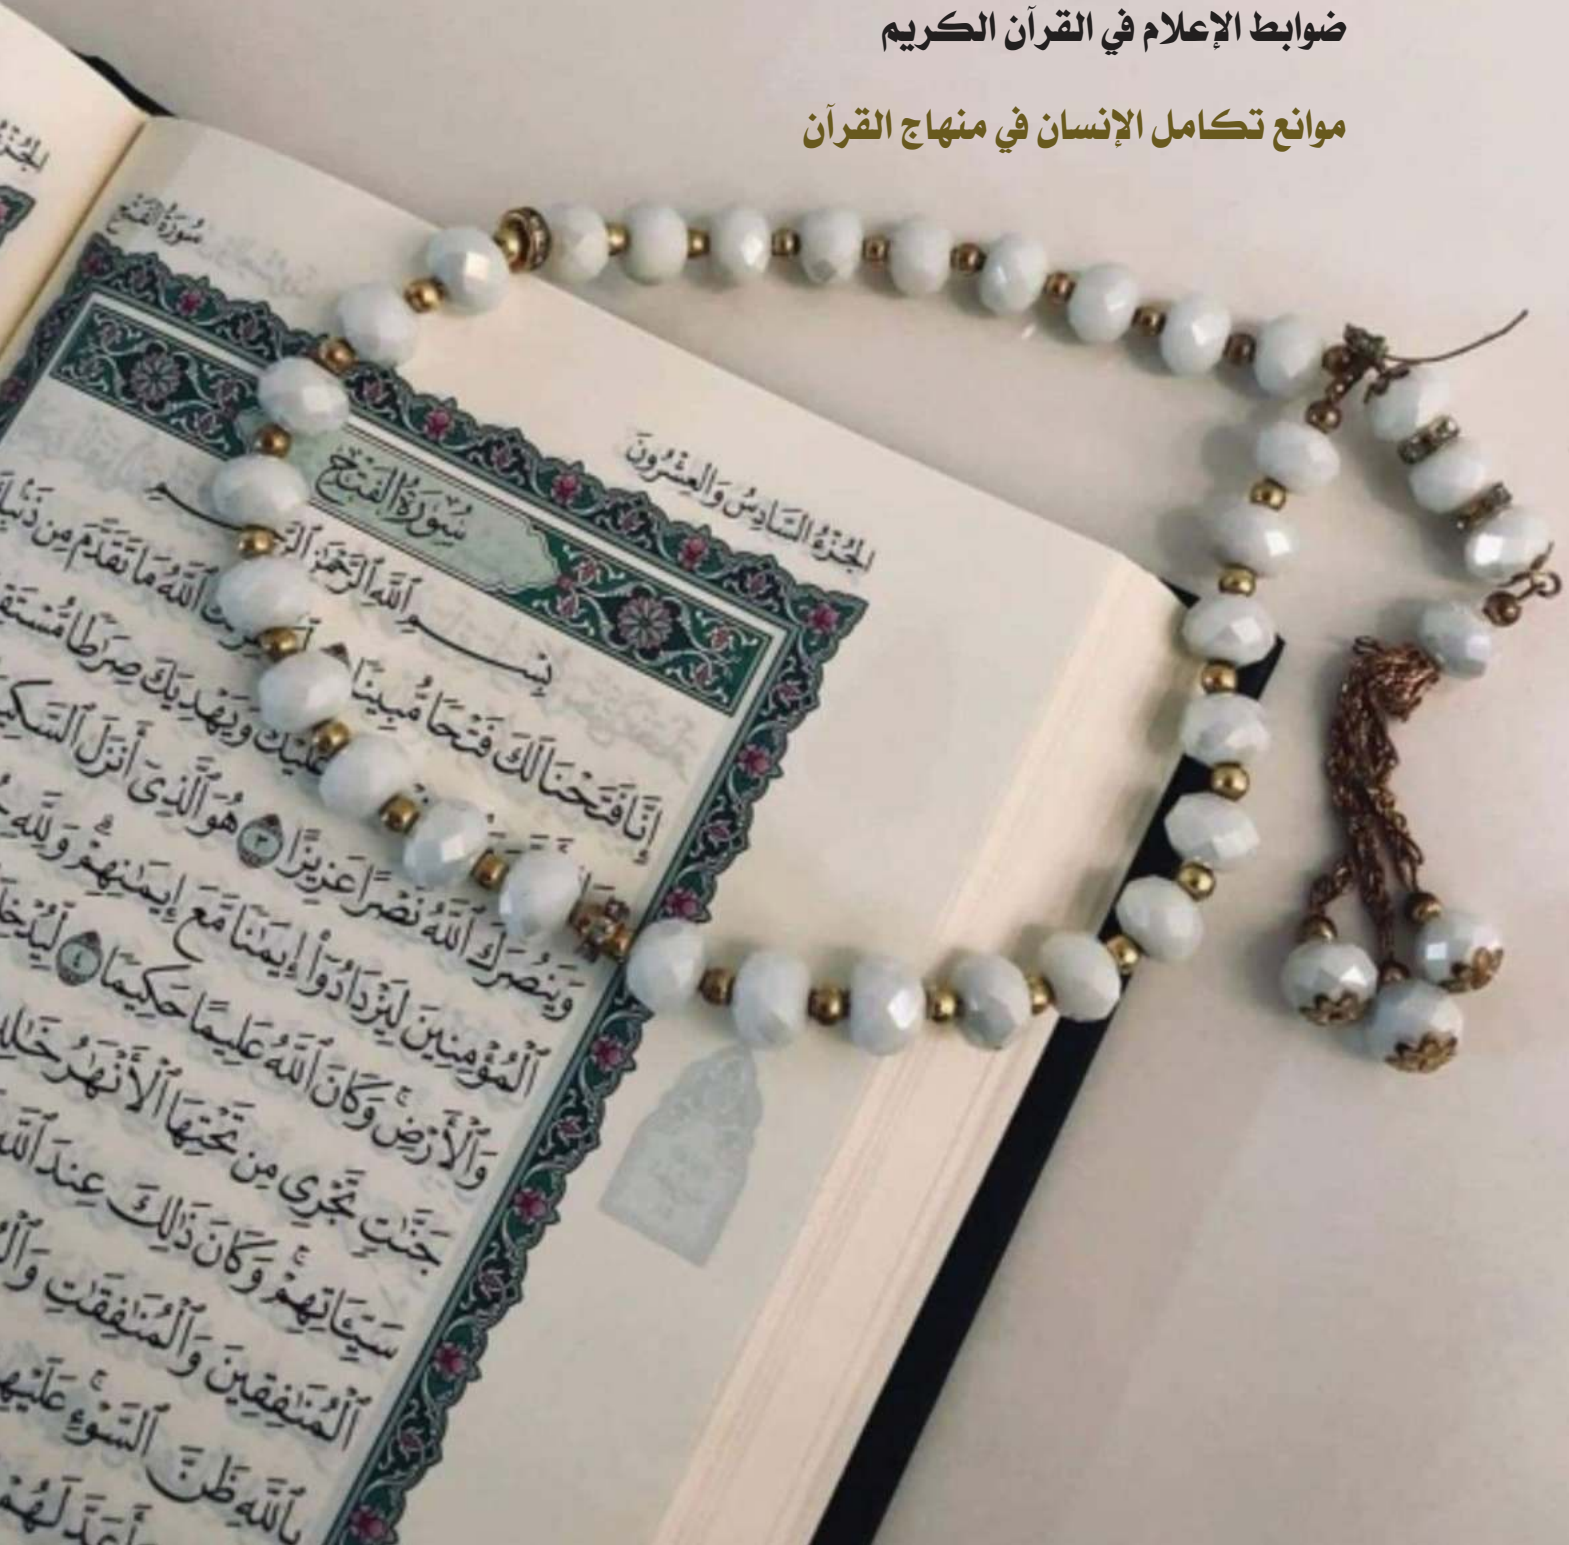 ضوابط الإعلام في القرآن الكريم
موانع تكامل الإنسان في منهاج القرآن
سُورَةُ الفَتْحِ
الجُزْءُ السَّادِسُ وَالعِشْرُونَ
سُورَةُ الفَتْحِ
بِسْمِ اللَّهِ الرَّحْمَٰنِ
إِنَّا فَتَحْنَا لَكَ فَتْحًا مُّبِينًا ٱللَّهُ مَا تَقَدَّمَ مِن ذَنۢبِكَ
عَلَيْكَ وَيَهْدِيَكَ صِرَٰطًا
وَيَنصُرَكَ ٱللَّهُ نَصْرًا عَزِيزًا ٣ هُوَ ٱلَّذِىٓ أَنزَلَ ٱلسَّكِينَةَ
ٱلْمُؤْمِنِينَ لِيَزْدَادُوٓا۟ إِيمَٰنًا مَّعَ إِيمَٰنِهِمْ ۗ وَلِلَّهِ
وَٱلْأَرْضِ ۚ وَكَانَ ٱللَّهُ عَلِيمًا حَكِيمًا ٤
جَنَّٰتٍ تَجْرِى مِن تَحْتِهَا ٱلْأَنْهَٰرُ
سَيِّـَٔاتِهِمْ ۚ وَكَانَ ذَٰلِكَ عِندَ ٱللَّهِ
ٱلْمُنَٰفِقِينَ وَٱلْمُنَٰفِقَٰتِ
بِٱللَّهِ ظَنَّ ٱلسَّوْءِ ۚ عَلَيْهِمْ